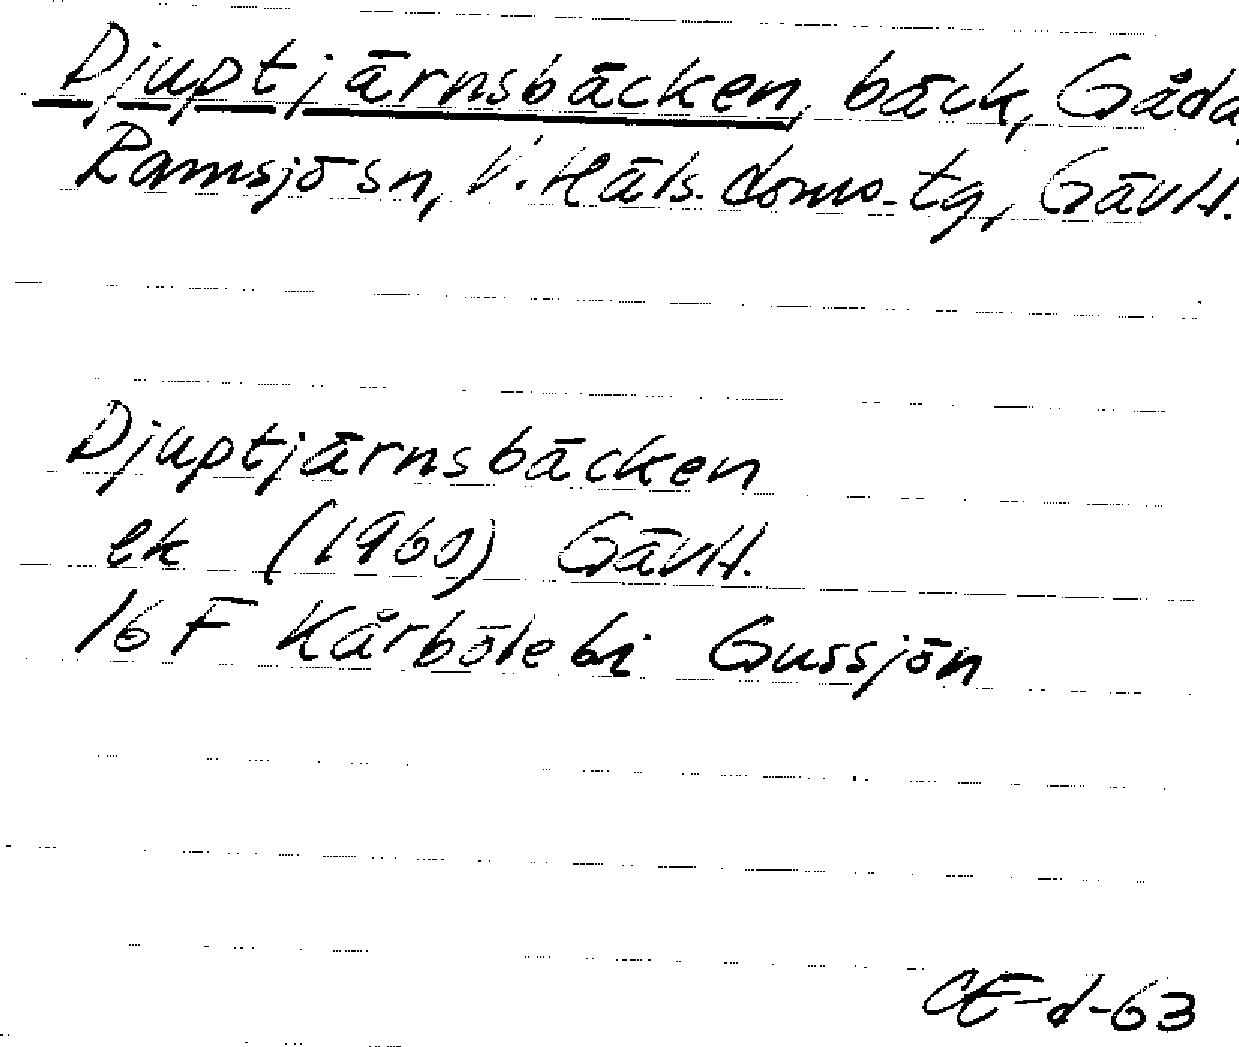 Djuptjärnsbäcken, bäck, Gåda,
Ramsjö sn, V. Häls. doms.tg, Gävl l.
Djuptjärnsbäcken
ek (1960) Gävl l.
16 F Kårböle bi Gussjön
CE-d-63